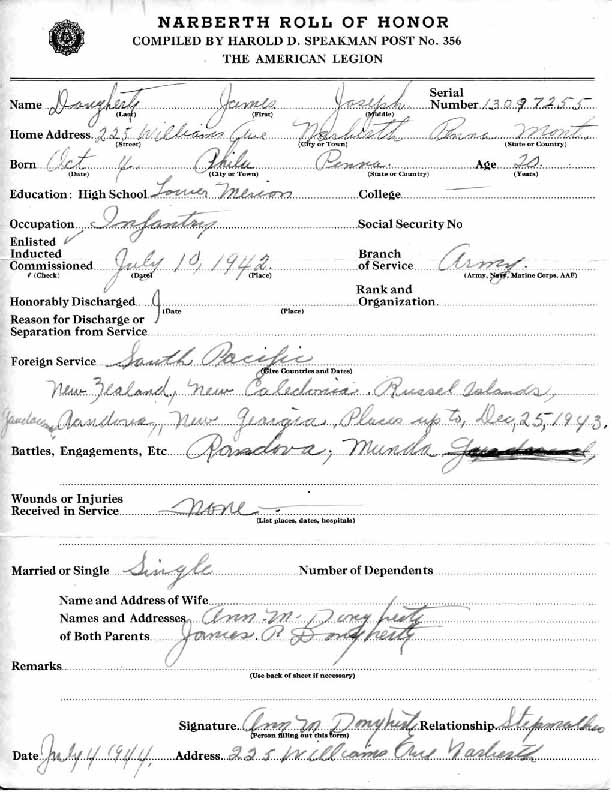 NARBERTH ROLL OF HONOR
COMPILED BY HAROLD D. SPEAKMAN POST No. 356
THE AMERICAN LEGION
Name Dougherty James Joseph Serial Number 13097255
(Last) (First) (Middle)
Home Address 225 Williams Ave Narberth Penna Mont
(Street) (City or Town) (State or Country)
Born Oct 4 Phila Penna. Age 20
(Date) (City or Town) (State or Country) (Years)
Education: High School Lower Merion College
Occupation Infantry Social Security No
Enlisted
Inducted Branch
Commissioned July 10, 1942. of Service Army.
(Check) (Date) (Place) (Army, Navy, Marine Corps, AAF)
Honorably Discharged Rank and Organization.
(Date (Place)
Reason for Discharge or
Separation from Service
Foreign Service South Pacific
(Give Countries and Dates)
New Zealand, New Caledonia. Russel Islands,
New Georgia. Places up to, Dec, 25, 1943.
Battles, Engagements, Etc Randova, Munda
Wounds or Injuries
Received in Service None
(List places, dates, hospitals)
Married or Single Single Number of Dependents
Name and Address of Wife
Names and Addresses Ann M. Dougherty
of Both Parents James. P. Dougherty
Remarks
(Use back of sheet if necessary)
Signature Ann M Dougherty Relationship Stepmother
(Person filling out this form)
Date July 4 1944. Address 225 Williams Ave Narberth